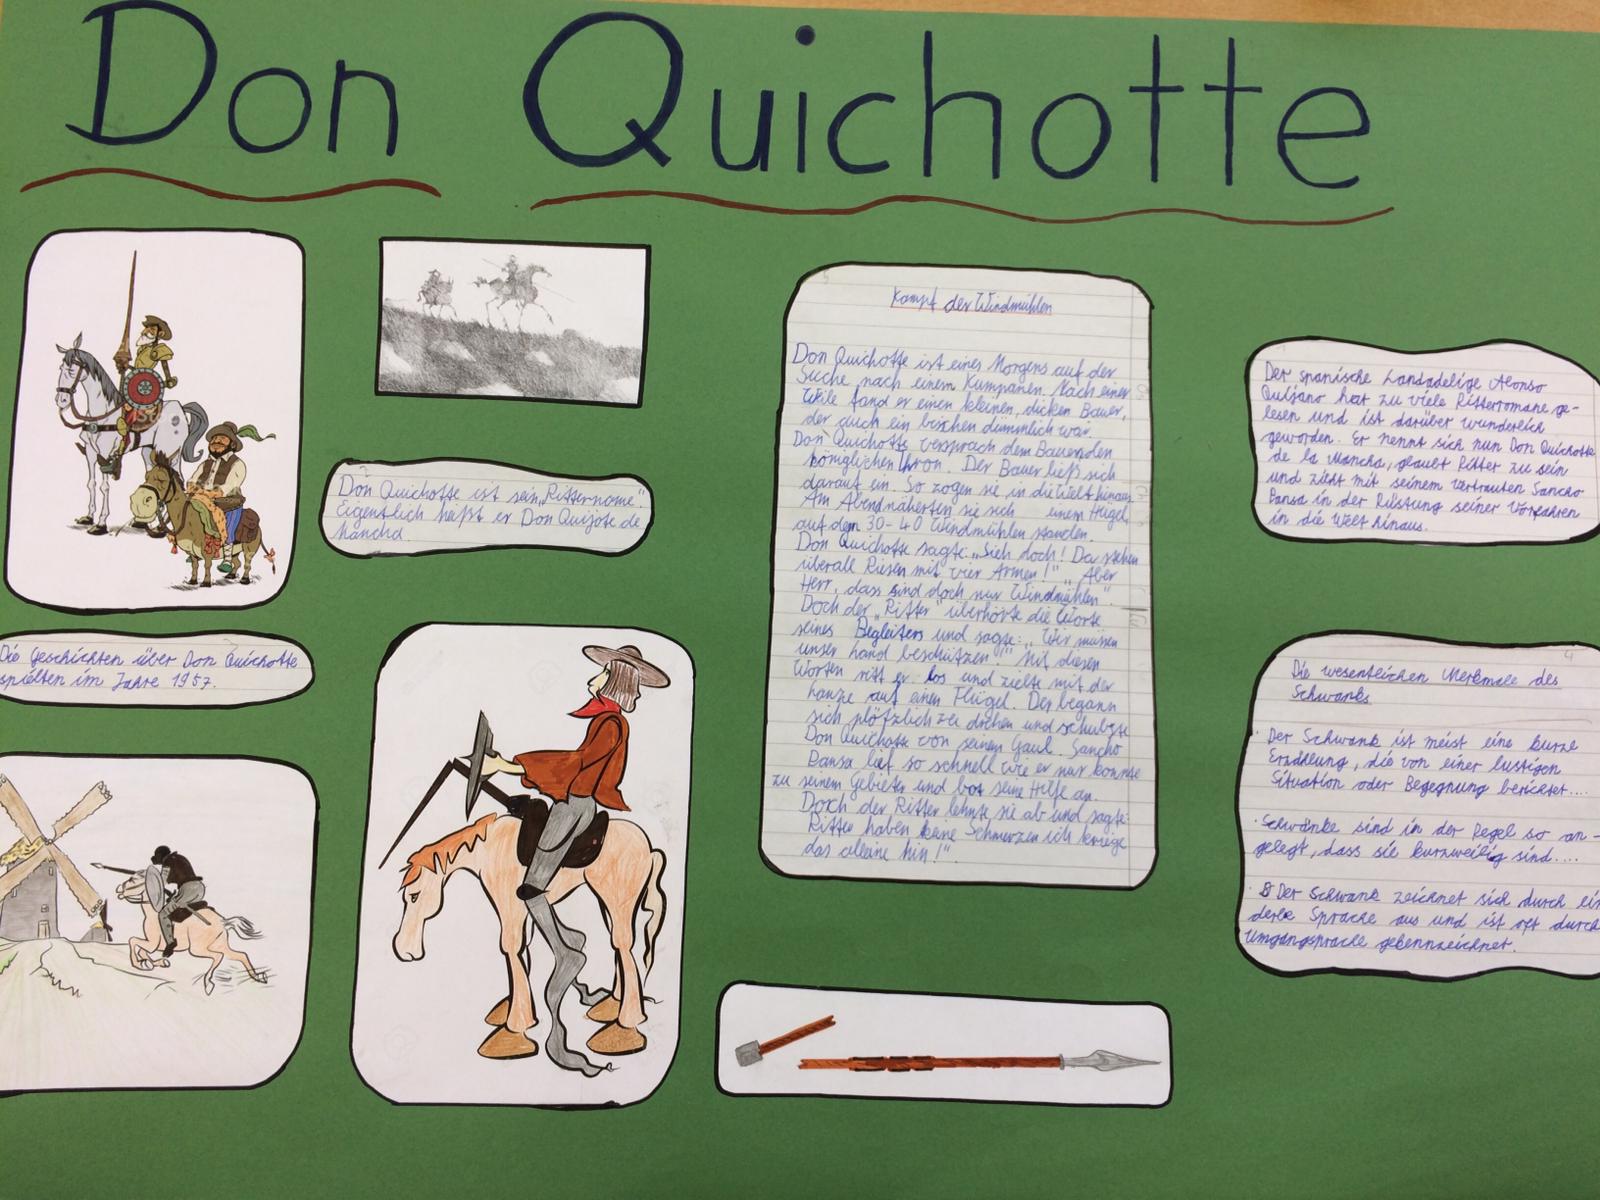 Don Quichotte
Don Quichotte ist sein „Rittername".
Eigentlich heißt er Don Quijote de
Mancha.
Die Geschichten über Don Quichotte
spielten im Jahre 1957.
Kampf der Windmühlen
Don Quichotte ist eines Morgens auf der
Suche nach einem Kumpanen. Nach einer
Wile fand er einen kleinen, dicken Bauer,
der auch ein bischen dümmlich war.
Don Quichotte versprach dem Bauern den
königlichen Thron. Der Bauer ließ sich
darauf ein. So zogen sie in die Welt hinaus
Am Abend näherten sie sich einem Hügel,
auf dem 30-40 Windmühlen standen.
Don Quichotte sagte: „Sieh doch! Da stehen
überall Riesen mit vier Armen!" „Aber
Herr, dass sind doch nur Windmühlen".
Doch der „Ritter" überhörte die Worte
seines Begleiters und sagte: „Wir müssen
unser Land beschützen!" Mit diesen
Worten ritt er los und zielte mit der
Lanze auf einen Flügel. Der begann
sich plötzlich zu drehen und schubste
Don Quichotte von seinem Gaul. Sancho
Pansa lief so schnell wie er nur konnte
zu seinem Gebieter und bot seine Hilfe an.
Doch der Ritter lehnte sie ab und sagte:
Ritter haben keine Schmerzen ich kriege
das alleine hin!".
Der spanische Landadelige Alonso
Quijano hat zu viele Ritterromane ge-
lesen und ist darüber wunderlich
geworden. Er nennt sich nun Don Quichotte
de la Mancha, glaubt Ritter zu sein
und zieht mit seinem Vertrauten Sancho
Pansa in der Rüstung seiner Vorfahren
in die Welt hinaus.
Die wesentlichen Merkmale des
Schwanks
· Der Schwank ist meist eine kurze
Erzählung, die von einer lustigen
Situation oder Begegnung berichtet....
· Schwänke sind in der Regel so an-
gelegt, dass sie kurzweilig sind....
· Der Schwank zeichnet sich durch ein
derbe Sprache aus und ist oft durch
Umgangsprache gekennzeichnet.